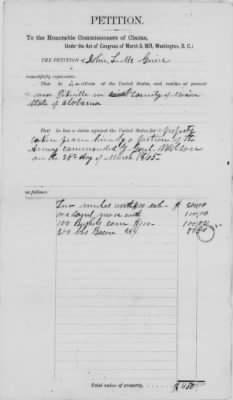 PETITION.
To the Honorable Commissioners of Claims,
Under the Act of Congress of March 3, 1871, Washington, D. C.:
THE PETITION of John L. Mc
respectfully represents:
That he is a citizen of the United States, and resides at present
near Pikville in County of Marion
State of Alabama
That he has a claim against the United States for property
taken from him by a portion of the
Army commanded by Genl. Wilson
on the day of March 1865
as follows:
Two mules worth each $ 200.00
one mare worth 100.00
100 Bushels corn 100.00
200 lbs Bacon 50.00
Total value of property, $ 450